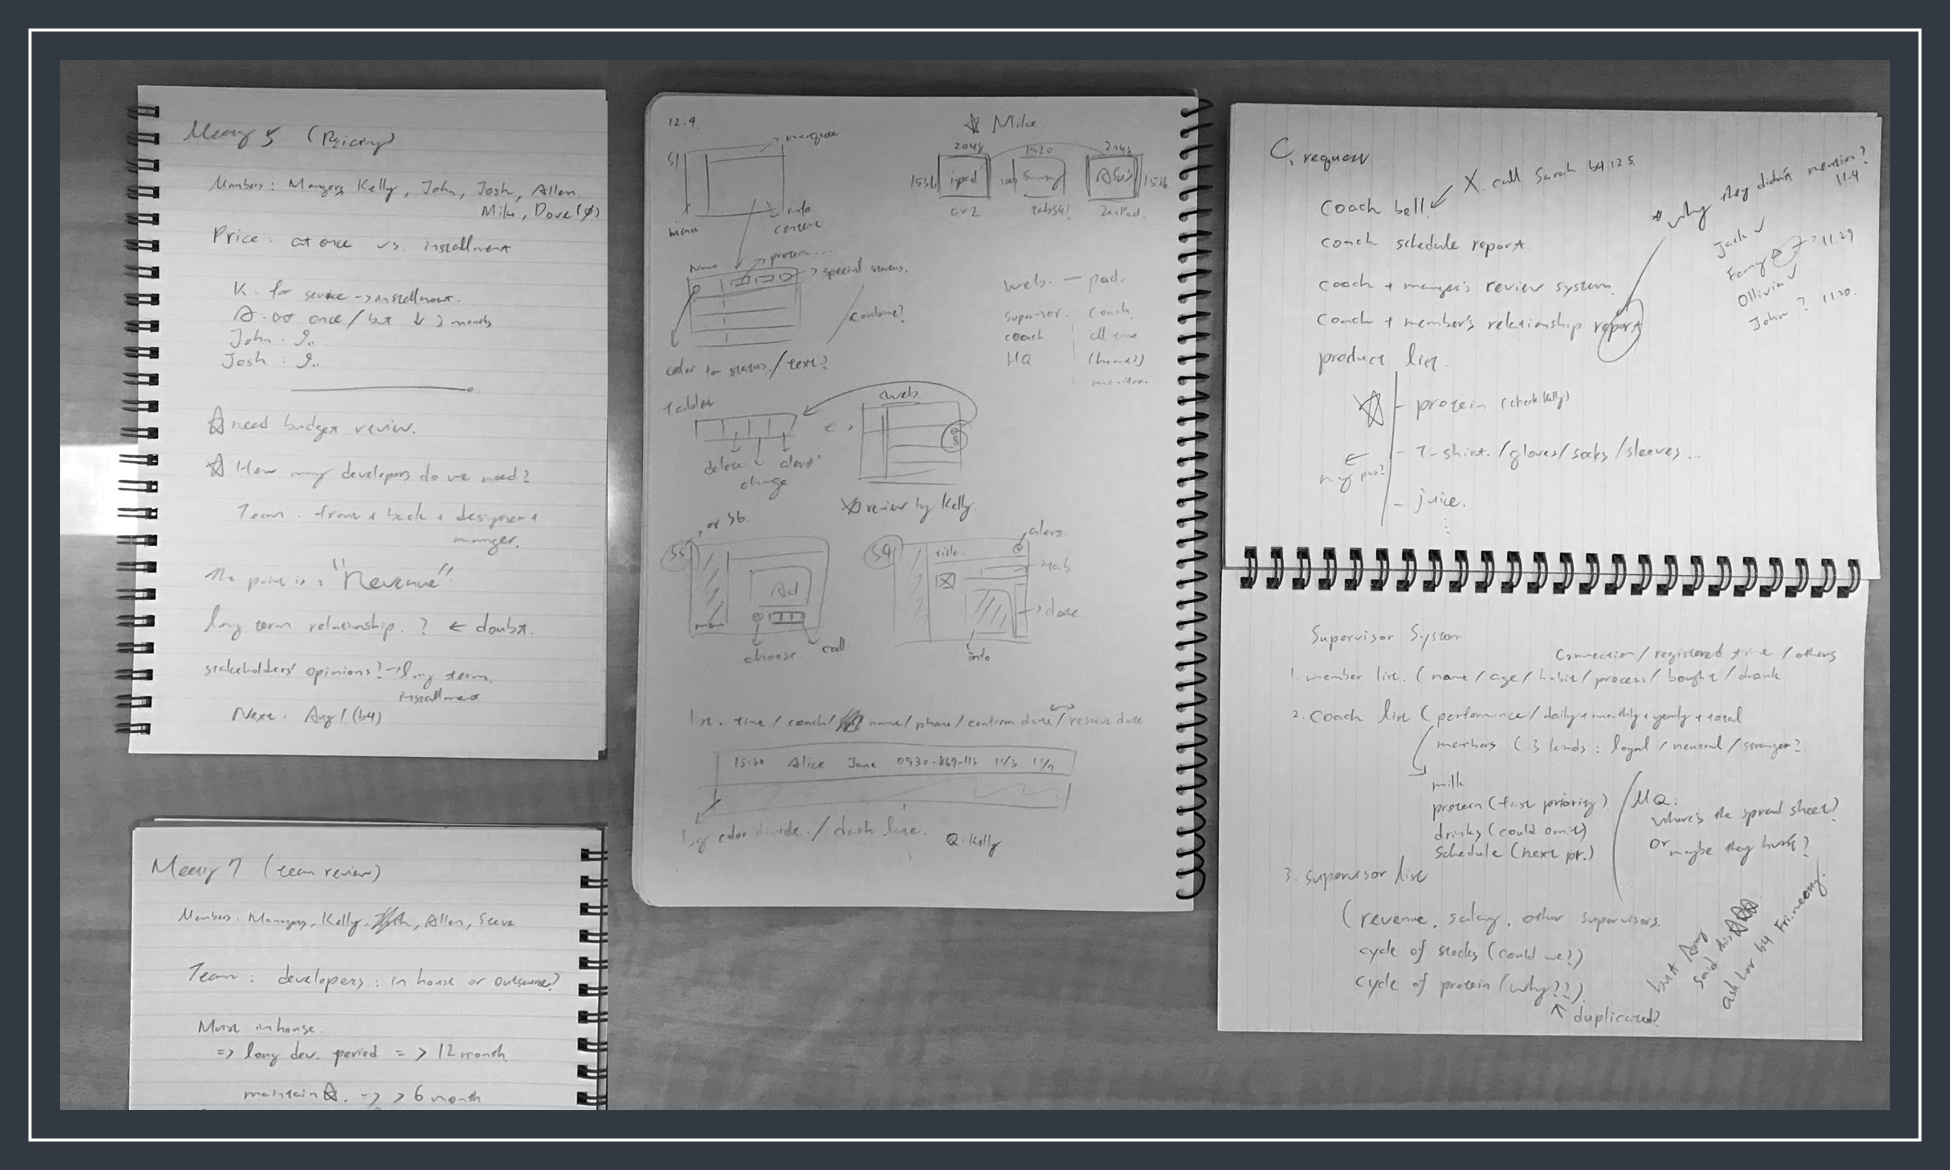 Meeting 5 (Pricing)
Members: Mangers, Kelly, John, Josh, Allen,
Mike, Dove(φ)
Price: at once vs. installment
K. for service -> installment.
A. at once / but ↓ 3 months
John:
Josh:
☆ need budget review.
☆ How many developers do we need?
Team. front + back + designer +
manger.
The point is: "Revenue"
long term relationship. ? ← doubt.
stakeholders' opinions? -> long term.
installment
Next: Any! (b4)
Meeting 7 (team review)
Members: Managers, Kelly, Allen, Steve
Team: developers: in house or outsource?
Must inhouse.
=> long dev. period => 12 month
maintain☆. -> > 6 month
12.9.
☆ Mike
S1
marquee
menu
info.
content
2048
1920
2048
1536
ipad
Samsung
ASUS
1536
air2
tabS4!
ZenPad.
Name
protein....
special status.
combine?
color for status. / text?
web. — pad.
supervisor. coach.
coach all time
HQ (home?)
monitor.
tablet
web.
delete
change
alert
☆ review by Kelly.
S5
or S6
Ad
menu
choose.
call
S9
title.
alert.
tab
date
info
list: time / coach / name / phone / confirm date / reserve date
15:30 Alice Jane 0930-867-113 11/3 11/9
by color divide. / dash line.
Q. Kelly
C. request
coach bell.
X. call Sarah b4 12.5.
coach schedule report
coach + manger's review system.
coach + member's relationship report
product list.
☆ - protein (check Kelly)
- T-shirt. / gloves / socks / sleeves ...
- juice.
why they didn't mention?
11.9
Jack ✓
? 11.29
Ollivia ✓
John ? 11.20.
Supervisor System
Connection / registered time / others
1. member list. (name / age / habit / process / bought / drank
2. coach list (performance / daily + monthly + yearly + total
members (3 kinds: loyal / neutral / stranger?
milk
protein (first priority)
drinks (could omit)
schedule (next pr.)
MQ:
where's the spread sheet?
or maybe they have?
3. supervisor list
(revenue, salary, other supervisors.
cycle of stocks (could we?)
cycle of protein (why??).
↑ duplicated?
but Amy
said this ☆☆☆
ask her b4 Fri. meeting.